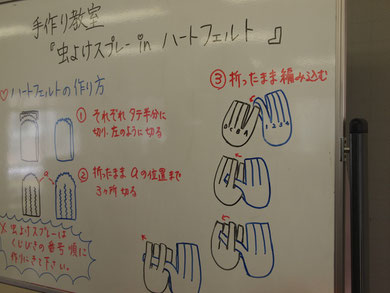 手作り教室
『虫よけスプレー in ハートフェルト 』
♡ハートフェルトの作り方
① それぞれ タテ半分に
切り、左のように切る
② 折ったまま aの位置まで
3ヶ所 切る
a
③ 折ったまま 編み込む
D C B A
1 2 3 4
※ 虫よけスプレーは
くじびきの番号順に
作りにきて下さい。